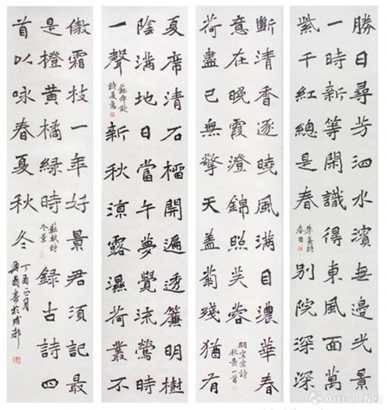 勝日尋芳泗水濱無邊光景
一時新等閒識得東風面萬
紫千紅總是春 朱熹詩春日 別院深深
夏席清石榴開遍透簾明樹
陰滿地日當午夢覺流鶯時
一聲 蘇舜欽詩夏意 新秋涼露濕荷叢不
斷清香逐曉風滿目濃華春
意在晚霞澄錦照芙蓉 胡宏詩秋景一首
荷盡已無擎天蓋菊殘猶有
傲霜枝一年好景君須記最
是橙黃橘綠時 蘇軾詩冬景 錄古詩四
首以咏春夏秋冬 丁酉 書於成都